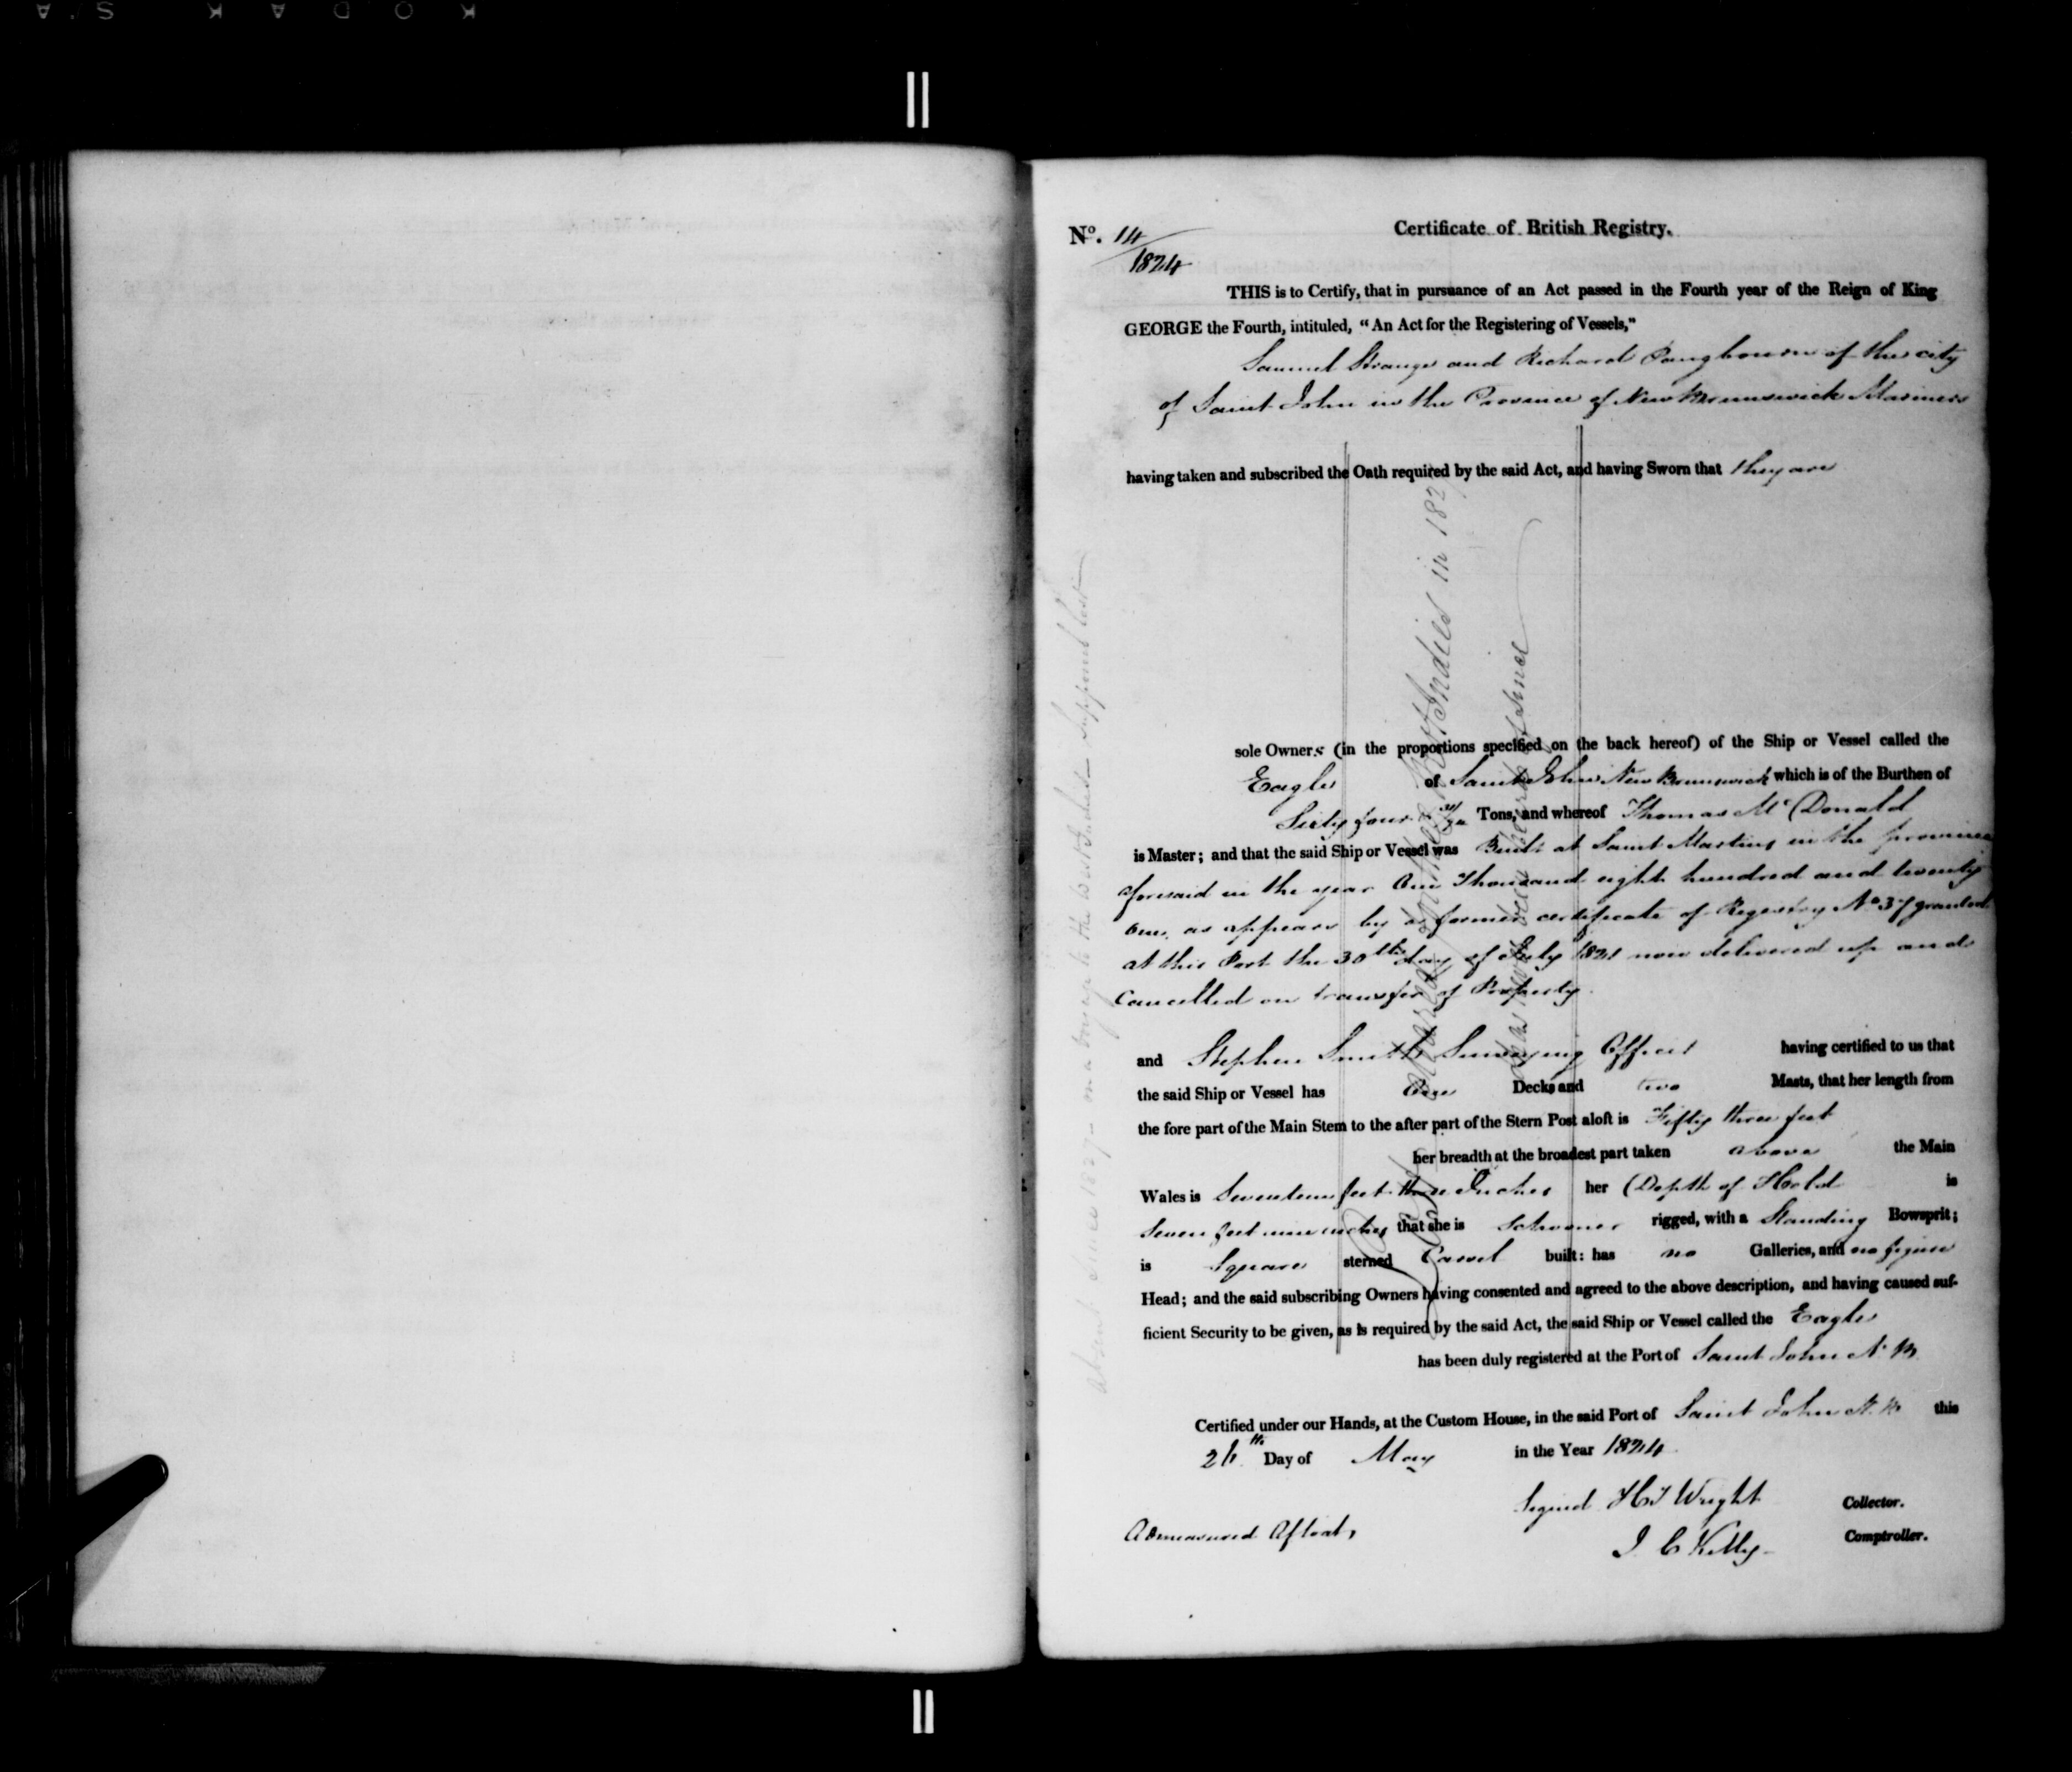 KODAK S.A
No. 14/1824
Certificate of British Registry.
THIS is to Certify, that in pursuance of an Act passed in the Fourth year of the Reign of King
GEORGE the Fourth, intituled, "An Act for the Registering of Vessels,"
Samuel Strange and Richard Pangbourn of the city
of Saint John in the Province of New Brunswick Mariners
having taken and subscribed the Oath required by the said Act, and having Sworn that they are
sole Owners (in the proportions specified on the back hereof) of the Ship or Vessel called the
Eagle of Saint John New Brunswick which is of the Burthen of
Sixty four Tons, and whereof Thomas Mc Donald
is Master; and that the said Ship or Vessel was Built at Saint Martins in the province
aforesaid in the year One Thousand eight hundred and twenty
one, as appears by a former certificate of Registry No 37 granted
at this Port the 30th day of July 1821 now delivered up and
Cancelled on transfer of Property.
and Stephen Smith Surveying Officer having certified to us that
the said Ship or Vessel has One Decks and two Masts, that her length from
the fore part of the Main Stem to the after part of the Stern Post aloft is Fifty three feet
her breadth at the broadest part taken above the Main
Wales is Seventeen feet three Inches her Depth of Hold is
Seven feet nine inches that she is Schooner rigged, with a Standing Bowsprit;
is Square sterned Carvel built: has no Galleries, and no figure
Head; and the said subscribing Owners having consented and agreed to the above description, and having caused suf-
ficient Security to be given, as is required by the said Act, the said Ship or Vessel called the Eagle
has been duly registered at the Port of Saint John N. B.
Certified under our Hands, at the Custom House, in the said Port of Saint John N. B. this
26th Day of May in the Year 1824
Signed H. Wright Collector.
Admeasured Afloat, J. C Kelly Comptroller.
Absent since 1827 on a voyage to the West Indies Supposed lost
Indies in 182